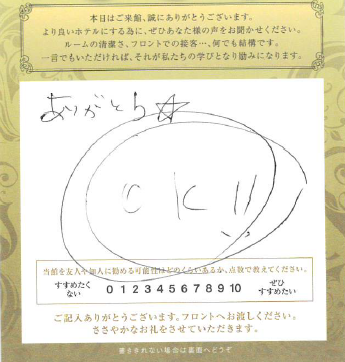 本日はご来館、誠にありがとうございます。
より良いホテルにする為に、ぜひあなた様の声をお聞かせください。
ルームの清潔さ、フロントでの接客…、何でも結構です。
一言でもいただければ、それが私たちの学びとなり励みになります。
ありがとう☆
OK!!
当館を友人や知人に勧める可能性はどのくらいあるか、点数で教えてください。
すすめたくない 0 1 2 3 4 5 6 7 8 9 10 ぜひすすめたい
ご記入ありがとうございます。フロントへお渡しください。
ささやかなお礼をさせていただきます。
書ききれない場合は裏面へどうぞ